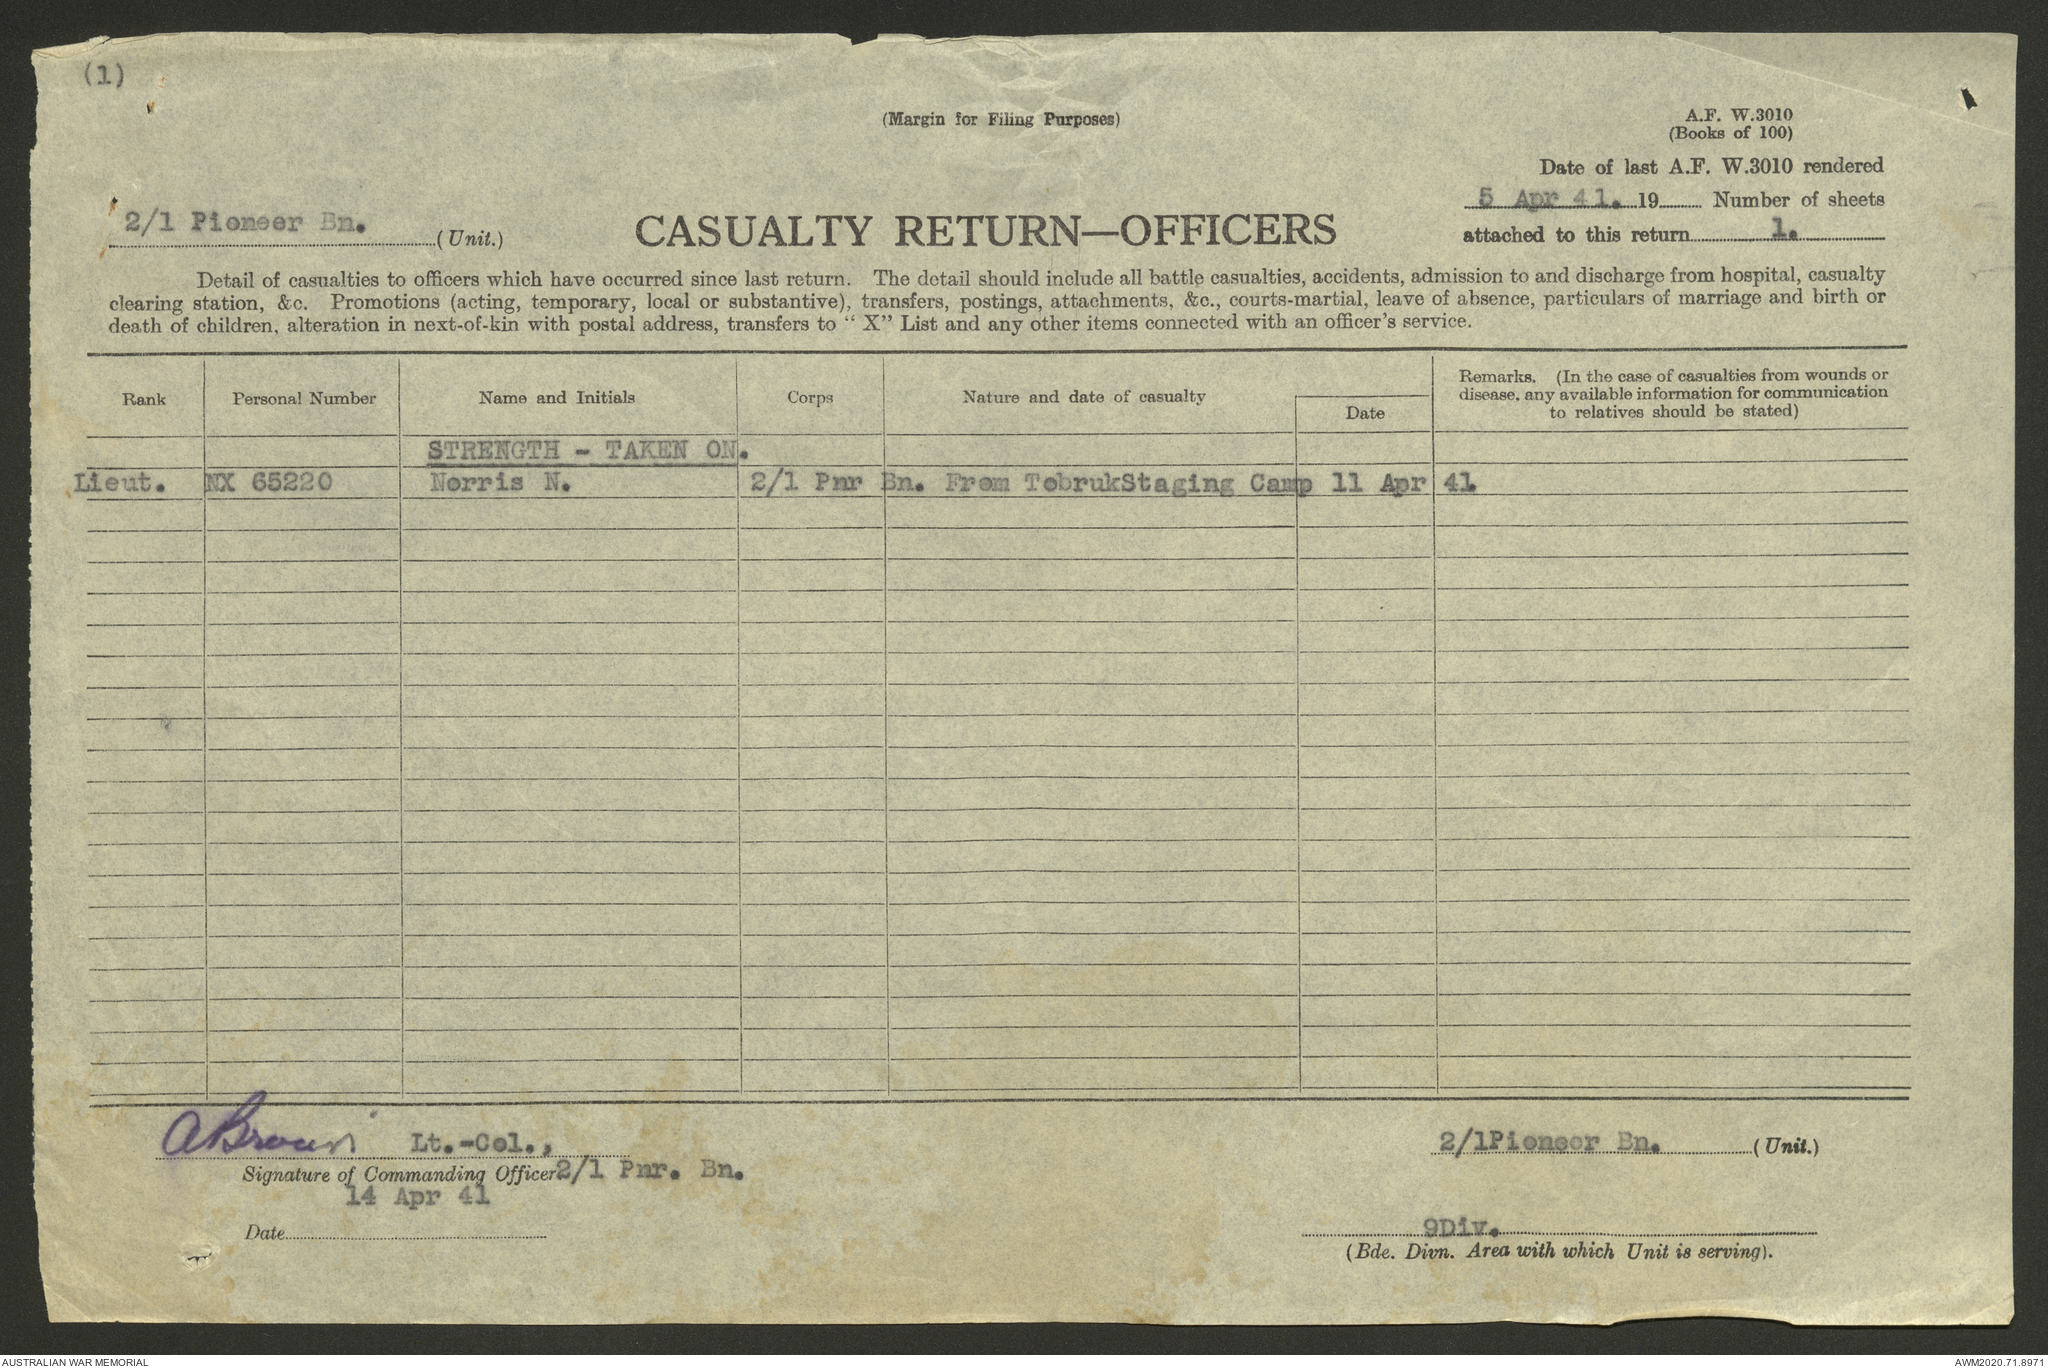 (1)
(Margin for Filing Purposes)
A.F. W.3010
(Books of 100)
Date of last A.F. W.3010 rendered
5 Apr 41. 19 Number of sheets
attached to this return 1.
2/1 Pioneer Bn. (Unit.)
CASUALTY RETURN—OFFICERS
Detail of casualties to officers which have occurred since last return. The detail should include all battle casualties, accidents, admission to and discharge from hospital, casualty
clearing station, &c. Promotions (acting, temporary, local or substantive), transfers, postings, attachments, &c., courts-martial, leave of absence, particulars of marriage and birth or
death of children, alteration in next-of-kin with postal address, transfers to “ X” List and any other items connected with an officer's service.
Rank Personal Number Name and Initials Corps Nature and date of casualty Date Remarks. (In the case of casualties from wounds or
disease, any available information for communication
to relatives should be stated)
STRENGTH - TAKEN ON.
Lieut. NX 65220 Norris N. 2/1 Pnr Bn. From TobrukStaging Camp 11 Apr 41.
ABrown Lt.-Col.,
Signature of Commanding Officer 2/1 Pnr. Bn.
14 Apr 41
Date
2/1Pioneer Bn. (Unit.)
9Div.
(Bde. Divn. Area with which Unit is serving).
AUSTRALIAN WAR MEMORIAL
AWM2020.71.8971